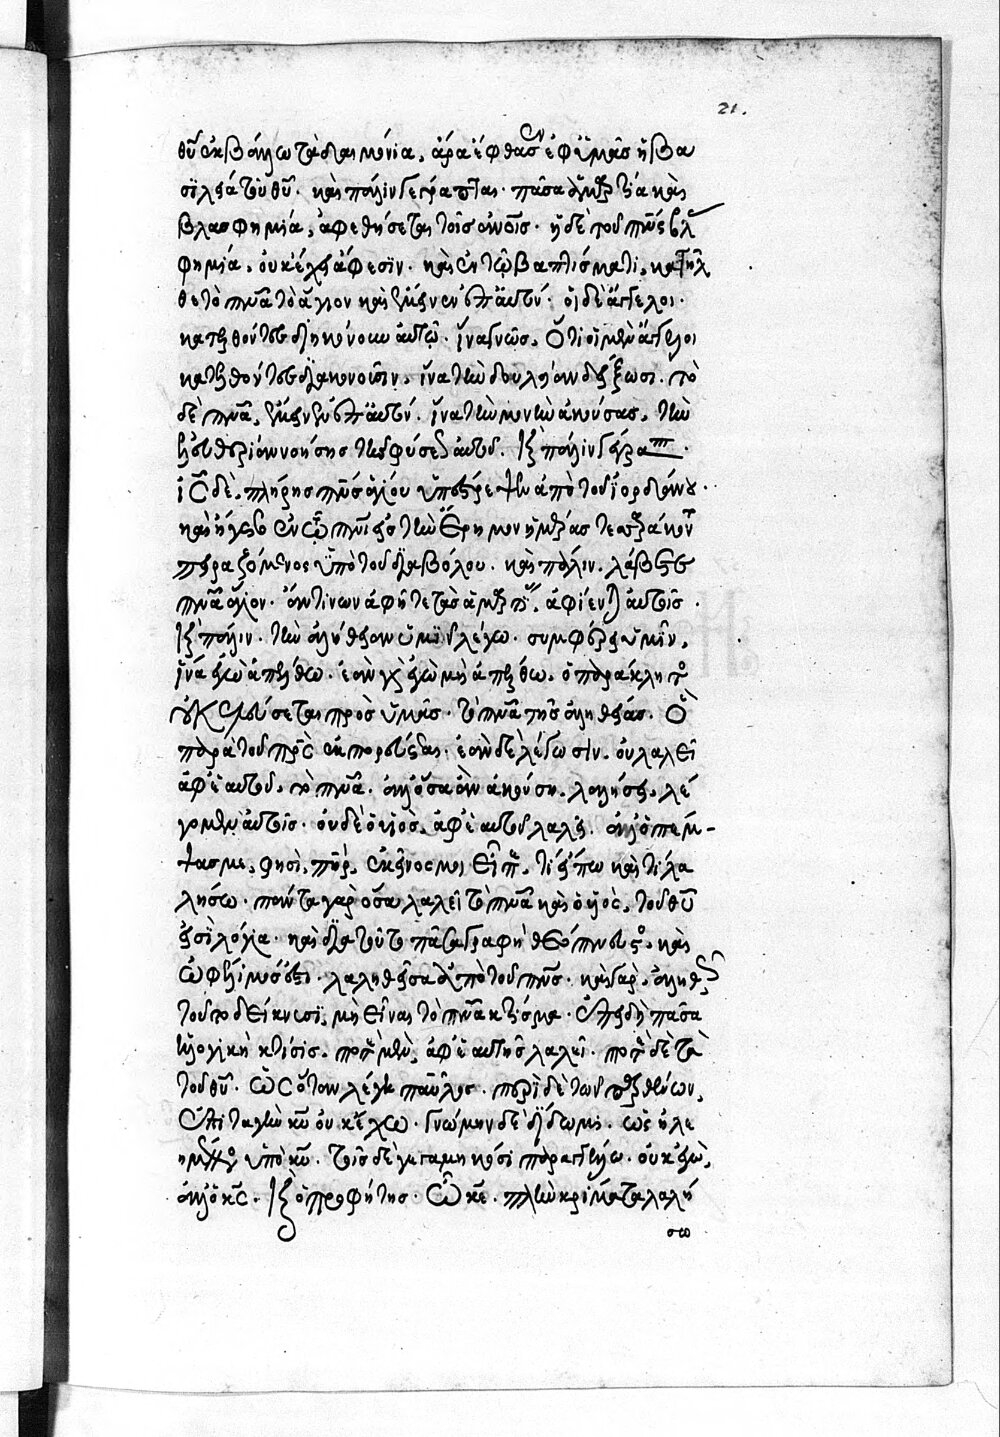 21.
θῦ ἐκβάλλω τὰ δαιμόνια. ἄρα ἔφθασεν ἐφ' ὑμᾶς ἡ βα
σιλεία τοῦ θῦ. καὶ πάλιν γέγραπται. πᾶσα ἁμαρτία καὶ
βλασφημία, ἀφεθήσεται τοῖς ἀνοῖς. ἡ δὲ τοῦ πνς βλ
φημία. οὐκ ἔχει ἄφεσιν. καὶ ἐν τῷ βαπτίσματι. κατῆλ
θε τὸ πνα τὸ ἅγιον καὶ ἔμεινεν ἐπ' αὐτόν. οἱ δὲ ἄγγελοι.
κατελθόντες διηκόνουν αὐτῷ. ἵνα γνῷς. ὅτι οἱ μὲν ἄγγελοι
κατελθόντες διακονοῦσιν. ἵνα τὴν δουλείαν δείξωσι. τὸ
δὲ πνα. ἔμεινεν ἐπ' αὐτόν. ἵνα τὴν μονὴν ἀκούσας. τὴν
τῆς φύσεως αὐτοῦ. καὶ πάλιν γέγραπ.
ις δὲ. πλήρης πνς ἁγίου ὑπέστρεψεν ἀπὸ τοῦ ἰορδάνου.
καὶ ἤγετο ἐν τῷ πνι εἰς τὴν ἔρημον ἡμέρας τεσσαράκοντ
πειραζόμενος ὑπὸ τοῦ διαβόλου. καὶ πάλιν. λάβετε
πνα ἅγιον. ἄν τινων ἀφῆτε τὰς ἁμαρτι. ἀφίενται αὐτοῖς.
καὶ πάλιν. τὴν ἀλήθειαν ὑμῖν λέγω. συμφέρει ὑμῖν.
ἵνα ἐγὼ ἀπέλθω. ἐὰν γὰρ ἐγὼ μὴ ἀπέλθω. ὁ παράκλητο
οὐκ ἐλεύσεται πρὸς ὑμᾶς. τὸ πνα τῆς ἀληθείας. ὃ
παρὰ τοῦ πρς ἐκπορεύεται. ἐὰν δὲ λέγωσιν. οὐ λαλεῖ
ἀφ' ἑαυτοῦ. τὸ πνα. ἀλλ' ὅσα ἂν ἀκούσῃ. λαλήσει. λέ
γομεν αὐτοῖς. οὐδὲ ὁ υἱὸς. ἀφ' ἑαυτοῦ λαλεῖ. ἀλλ' ὁ πέμ-
ψας με, φησὶ, πηρ. ἐκεῖνός μοι εἶπε. τί εἴπω καὶ τί λα
λήσω. πάντα γὰρ ὅσα λαλεῖ τὸ πνα καὶ ὁ υἱὸς. τοῦ θῦ
εἰσὶ λόγια. καὶ διὰ τοῦτο πᾶσα γραφὴ θεόπνευστος. καὶ
ὠφέλιμός ἐστι. λαληθεῖσα ὑπὸ τοῦ πνς. καὶ γὰρ. ἀληθῶς
τοῦτο δείκνυσι, μὴ εἶναι τὸ πνα κτίσμα. ἐπειδὴ πᾶσα
ἡ λογικὴ κτίσις. ποτὲ μὲν, ἀφ' ἑαυτῆς λαλεῖ. ποτὲ δὲ τὰ
τοῦ θῦ. ὡς ὅταν λέγῃ παῦλος. περὶ δὲ τῶν παρθένων,
ἐπιταγὴν κυ οὐκ ἔχω. γνώμην δὲ δίδωμι. ὡς ἠλε
ημένος ὑπὸ κυ. τοῖς δὲ γεγαμηκόσι παραγγέλλω. οὐκ ἐγὼ,
ἀλλ' ὁ κς. καὶ ὁ προφήτης. ὦ κε. πλὴν κρίματα λαλή
σω